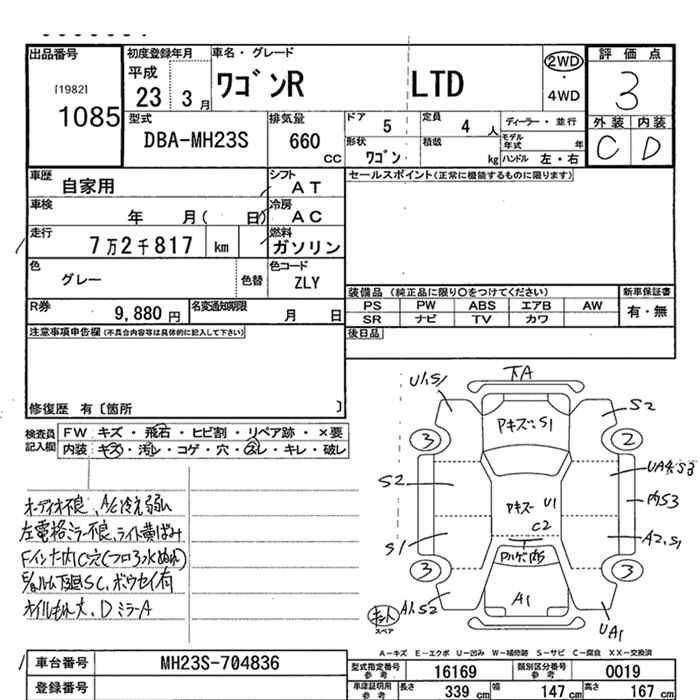 出品番号
[1982]
1085
初度登録年月
平成
23 3月
車名・グレード
ワゴンR LTD
2WD
・
4WD
評価点
3
外装 内装
C D
型式
DBA-MH23S
排気量
660 CC
ドア 5
定員 4人
ディーラー・並行
形状 ワゴン
積載 kg
モデル年式 年
ハンドル 左・右
車歴 自家用
シフト AT
セールスポイント(正常に機能するものに限ります)
車検 年 月( 日)
冷房 AC
走行 7万2千817 km
燃料 ガソリン
色 グレー 色替
色コード ZLY
装備品 (純正品に限り〇をつけてください)
新車保証書
PS PW ABS エアB AW
有・無
SR ナビ TV カワ
R券 9,880円
名変通知期限 月 日
後日品
注意事項申告欄(不具合内容等は具体的に記入して下さい)
修復歴 有〔箇所 〕
検査員記入欄
FW キズ・飛石・ヒビ割・リペア跡・×要
内装・キズ・汚レ・コゲ・穴・スレ・キレ・破レ
オーディオ不良、A/C冷え弱い
左電格ミラー不良、ライト黄ばみ
ボウセイ有
DミラーA
U1.S1
下A
S2
アキズ~S1
3
2
S2
UA4.S3
内S3
アキズ~ U1
C2
S1
A2.S1
3
3
A1
A1.S2
UA1
スペア
A-キズ E-エクボ U-凹み W-補修跡 S-サビ C-腐食 XX-交換済
車台番号 MH23S-704836
登録番号
型式指定番号 参考 16169
類別区分番号 参考 0019
車庫証明用 参考
長さ 339 cm
幅 147 cm
高さ 167 cm